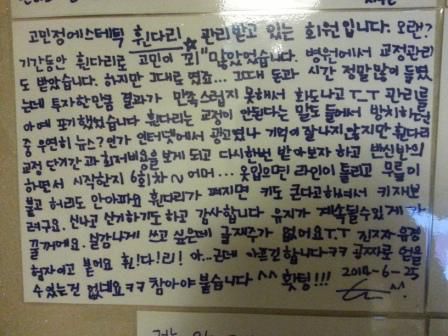 고민정에스테틱 휜다리☆관리받고 있는 회원입니다. 오랜?
기간동안 휜다리로 고민이 꾀 "많았었습니다. 병원에서 교정관리
도 받았습니다. 하지만 그대로였죠... 그때 돈과 시간 정말많이 들였
는데 투자한만큼 결과가 만족스럽지 못해서 화도나고 ㅜ_ㅜ 관리를
아예 포기했었습니다. 휜다리는 교정이 안된다는 말도 들어서 방치하던
중 우연히 뉴스?인가 인터넷에서 광고였나 기억이 잘나지않지만 휜다리
교정 단기간과 최저비용을 보게 되고 다시한번 받아보자 하고 반신반의
하면서 시작한지 6회차~ 어머... 옷입으면 라인이 들리고 무릎이
붙고 허리도 안아파요 휜다리가 펴지면 키도 큰다고하셔서 키재본
려구요. 신나고 신기하기도 하고 감사합니다 유지가 계속될수있게
끌꺼에요. 실감나게 쓰고 싶은데 글재즈가 없어요ㅜㅜ 진짜 유경
험자이고 붙어요 휜!다!리! 아...근데 아프긴합니다ㅋㅋ 공짜로 얻을
수있는건 없네요ㅋㅋ 참아야 붙습니다 ^^ 홧팅!!!
2014-6-25